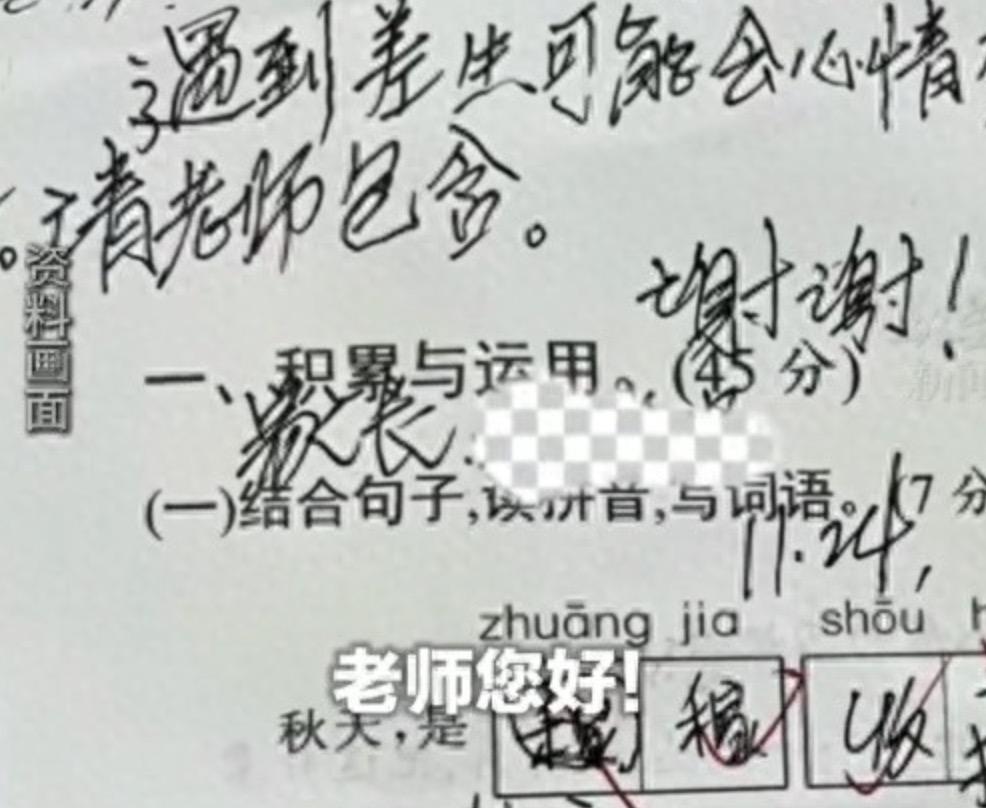 遇到差生可能会心情
。请老师包含。
谢谢!
资料画面
一、积累与运用。(45分)
家长
(一)结合句子,读拼音,写词语。(7分
11.24
zhuāng jia shōu h
老师您好!
秋天,是 稼 收